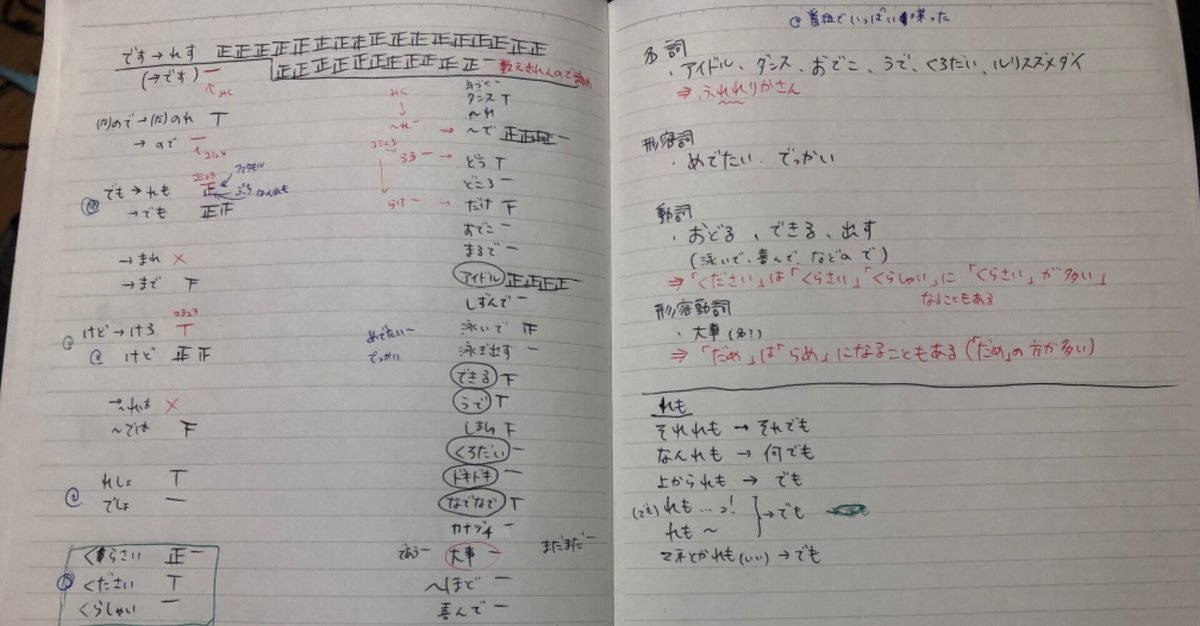 です→れす 正正正正正正正正正正正正正正正正正
(→です) 一 正正正正正正正正正正正一
HC
(だ)ので→(だ)のれ T
→ので 一
コミュ4
コミュ3
でも→れも 正
→でも 正正
→まれ ×
→まで 下
コミュ3
けど→けろ T
@ けど 正正
→〜れは ×
〜では 下
れしょ T
@ でしょ 一
くらさい 正一
ください T
くらしゃい 一
ダンス T
〜れ
HC
〜れ一 → 〜で 正正正正一
コミュ3
ろう一 → どう T
どころ 一
らけ一 → だけ 下
おでこ 一
まるで 一
アイドル 正正正正一
しずんで 一
泳いで 下
めでたい一
泳ぎ出す 一
でっかい
できる 下
うで T
しまい 下
くろだい 一
ドキドキ 一
なでなで T
カナヅチ 一
であう一 大事 一 まだまだ一
〜ほど 一
喜んで 一
@ 番組でいっぱい喋った
名詞
・アイドル、ダンス、おでこ、うで、くろだい、ルリスズメダイ
⇒ ふれれりかさん
形容詞
・めでたい、でっかい
動詞
・おどる、できる、出す
(泳いで、喜んで、などので)
⇒「ください」は「くらさい」「くらしゃい」に「くらさい」が多い」
なることもある
形容動詞
・大事(名?)
⇒「だめ」は「らめ」になることもある(「だめ」の方が多い)
れも
それれも → それでも
なんれも → 何でも
上かられも → でも
(でも)れも…っ! →でも
れも〜
マネとかれも(いい)→でも